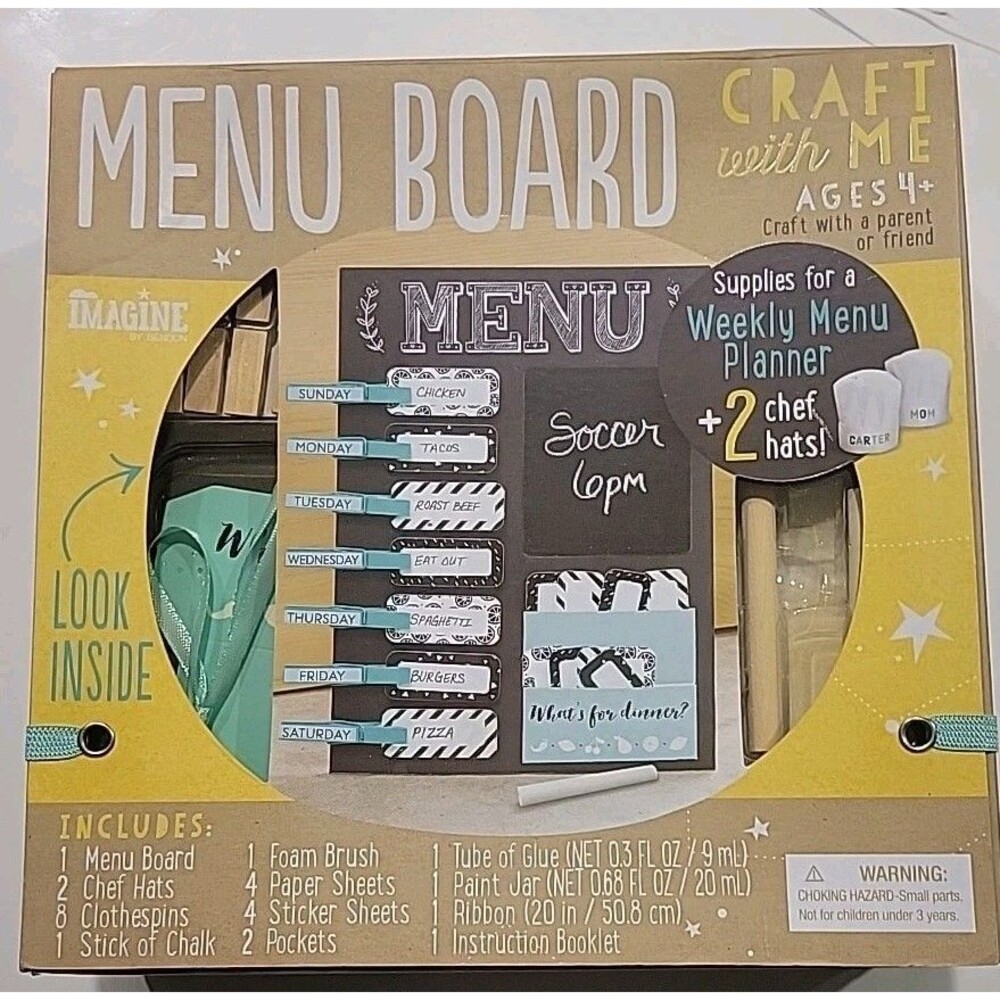 MENU BOARD
CRAFT
with ME
AGES 4+
Craft with a parent
or friend
IMAGINE
BY BENDON
Supplies for a
Weekly Menu
Planner
+2 chef
hats!
MOM
CARTER
MENU
SUNDAY CHICKEN
MONDAY TACOS
TUESDAY ROAST BEEF
WEDNESDAY EAT OUT
THURSDAY SPAGHETTI
FRIDAY BURGERS
SATURDAY PIZZA
Soccer
6pm
What's for dinner?
W
LOOK
INSIDE
INCLUDES:
1 Menu Board
2 Chef Hats
8 Clothespins
1 Stick of Chalk
1 Foam Brush
4 Paper Sheets
4 Sticker Sheets
2 Pockets
1 Tube of Glue (NET 0.3 FL OZ / 9 mL)
1 Paint Jar (NET 0.68 FL OZ / 20 mL)
1 Ribbon (20 in / 50.8 cm)
1 Instruction Booklet
WARNING:
CHOKING HAZARD-Small parts.
Not for children under 3 years.